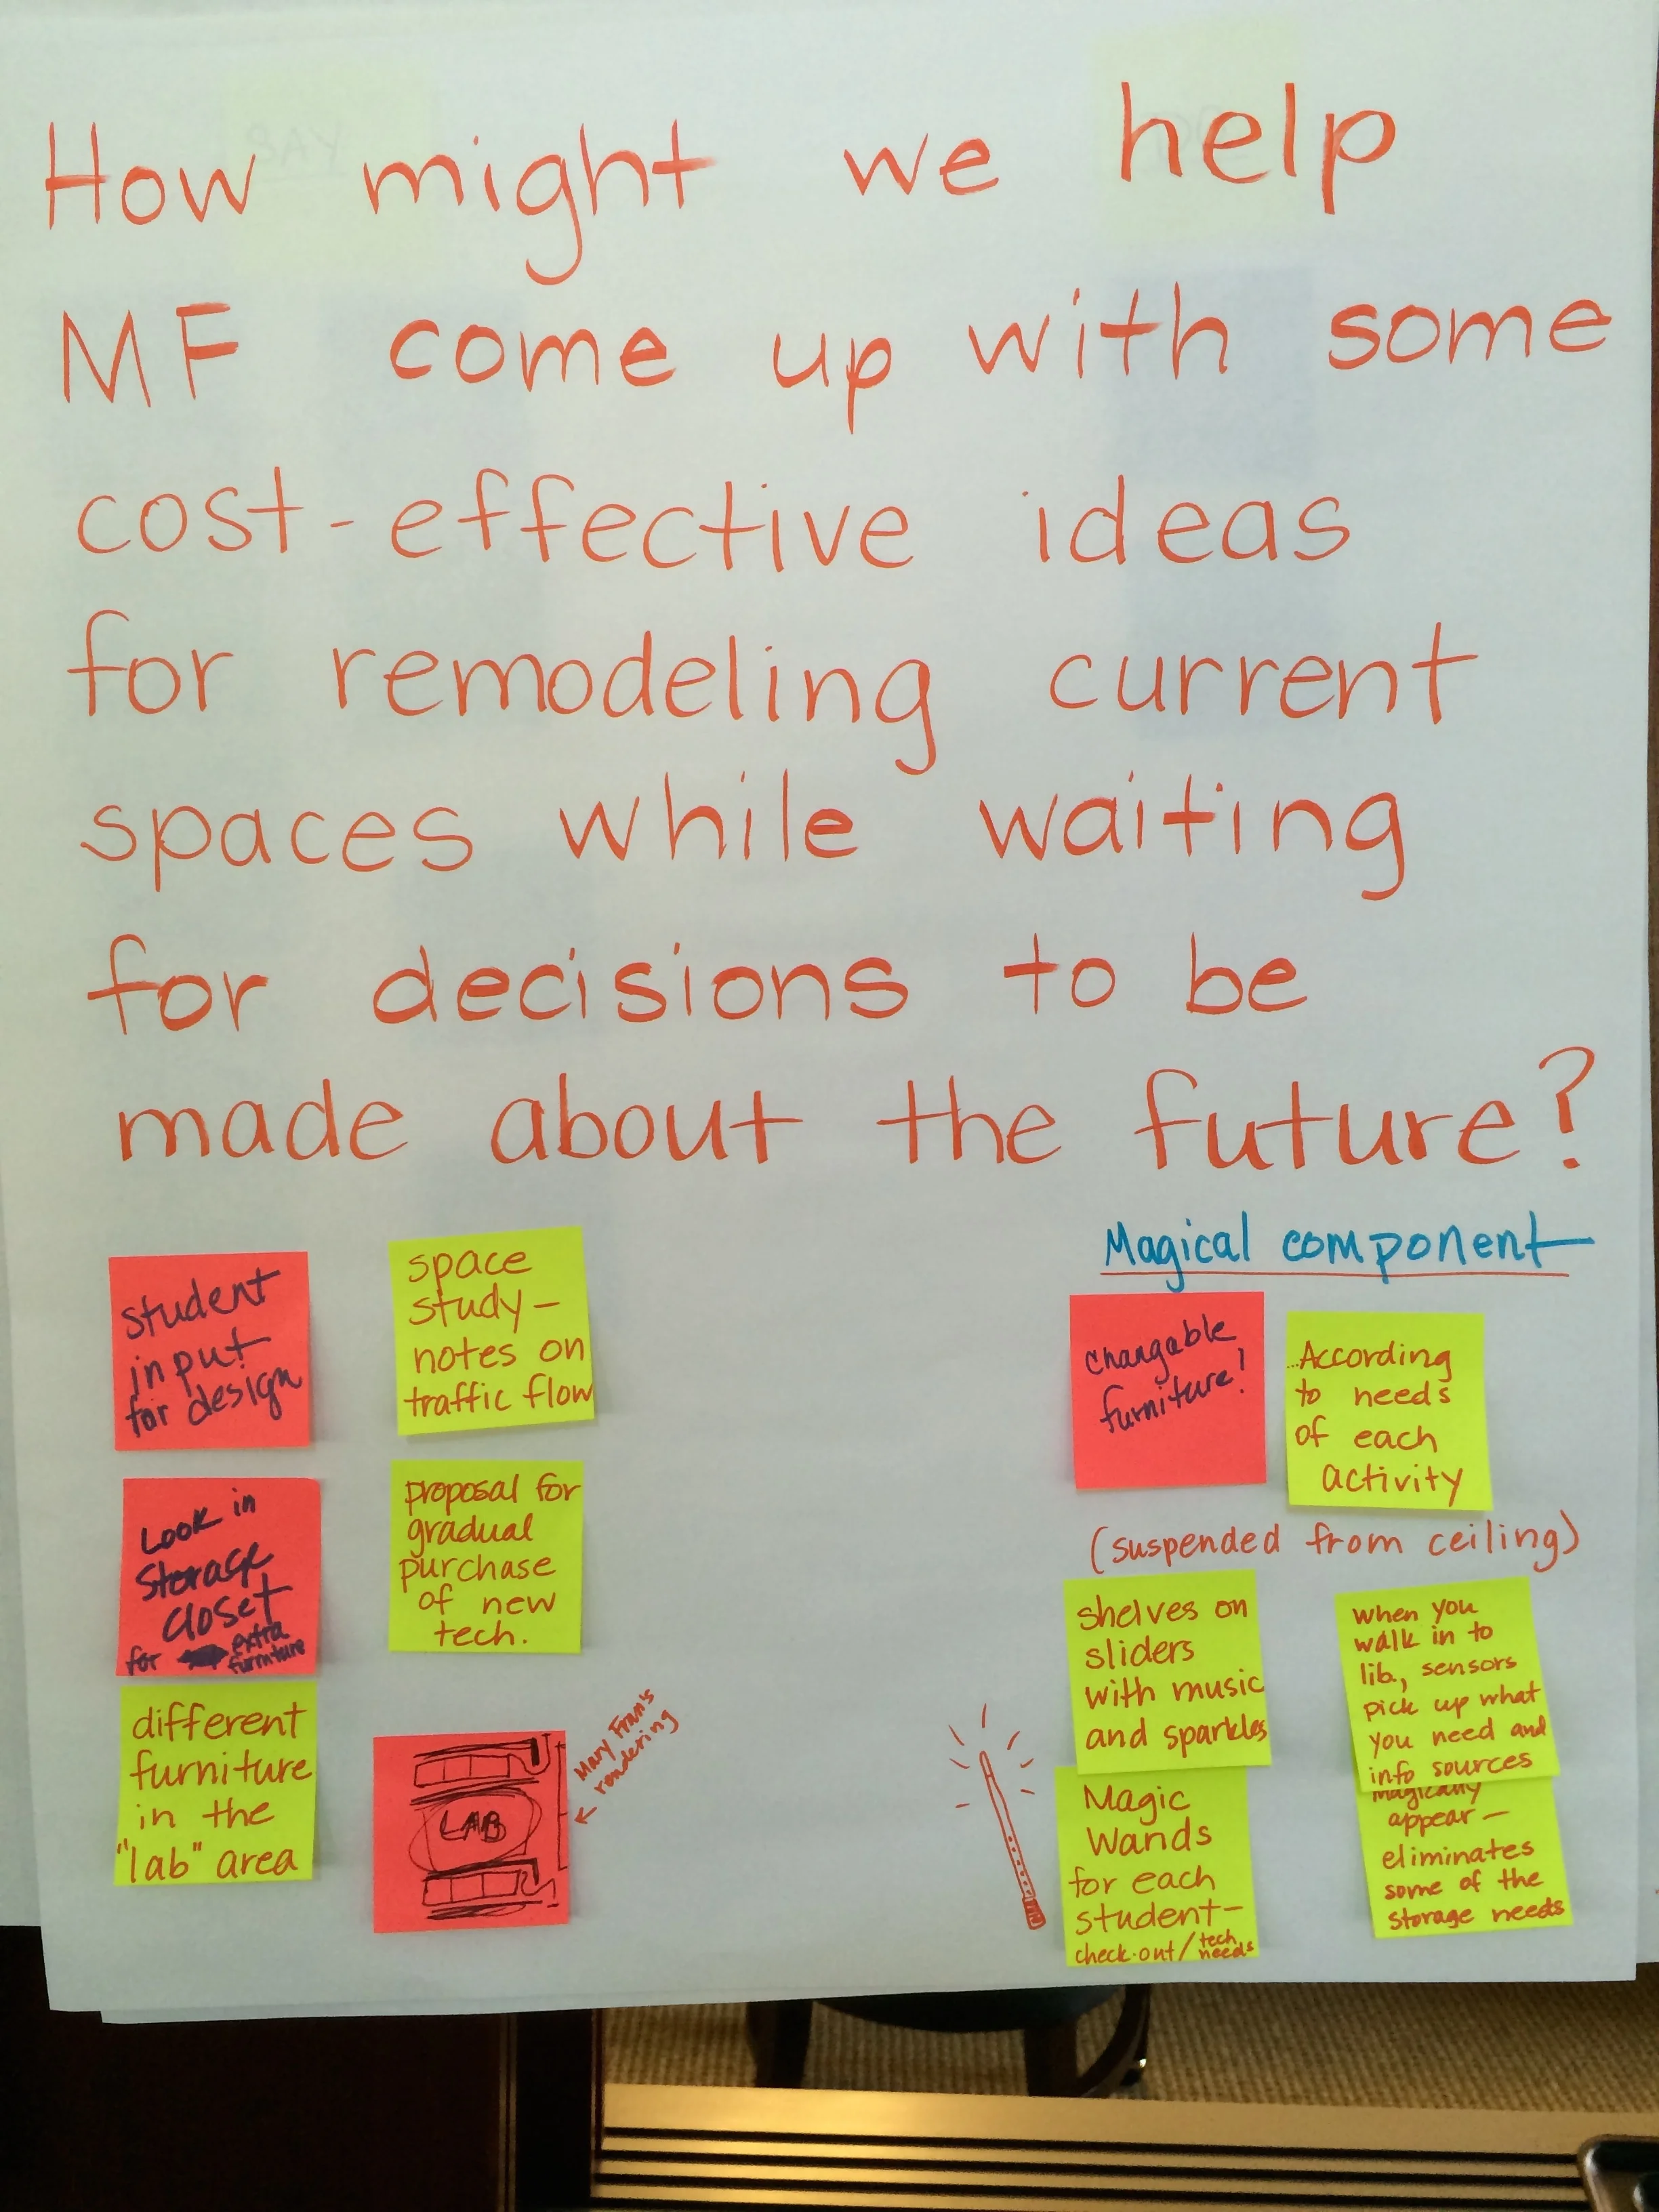 How might we help
MF come up with some
cost-effective ideas
for remodeling current
spaces while waiting
for decisions to be
made about the future?
student
input
for design
space
study-
notes on
traffic flow
Look in
storage
closet
for extra
furniture
proposal for
gradual
purchase
of new
tech.
different
furniture
in the
"lab" area
LAB
Mary Fran's
rendering
Magical component
changable
furniture!
...According
to needs
of each
activity
(suspended from ceiling)
shelves on
sliders
with music
and sparkles
when you
walk in to
lib., sensors
pick up what
you need and
info sources
magically
appear-
eliminates
some of the
storage needs
Magic
Wands
for each
student-
check-out/tech
needs